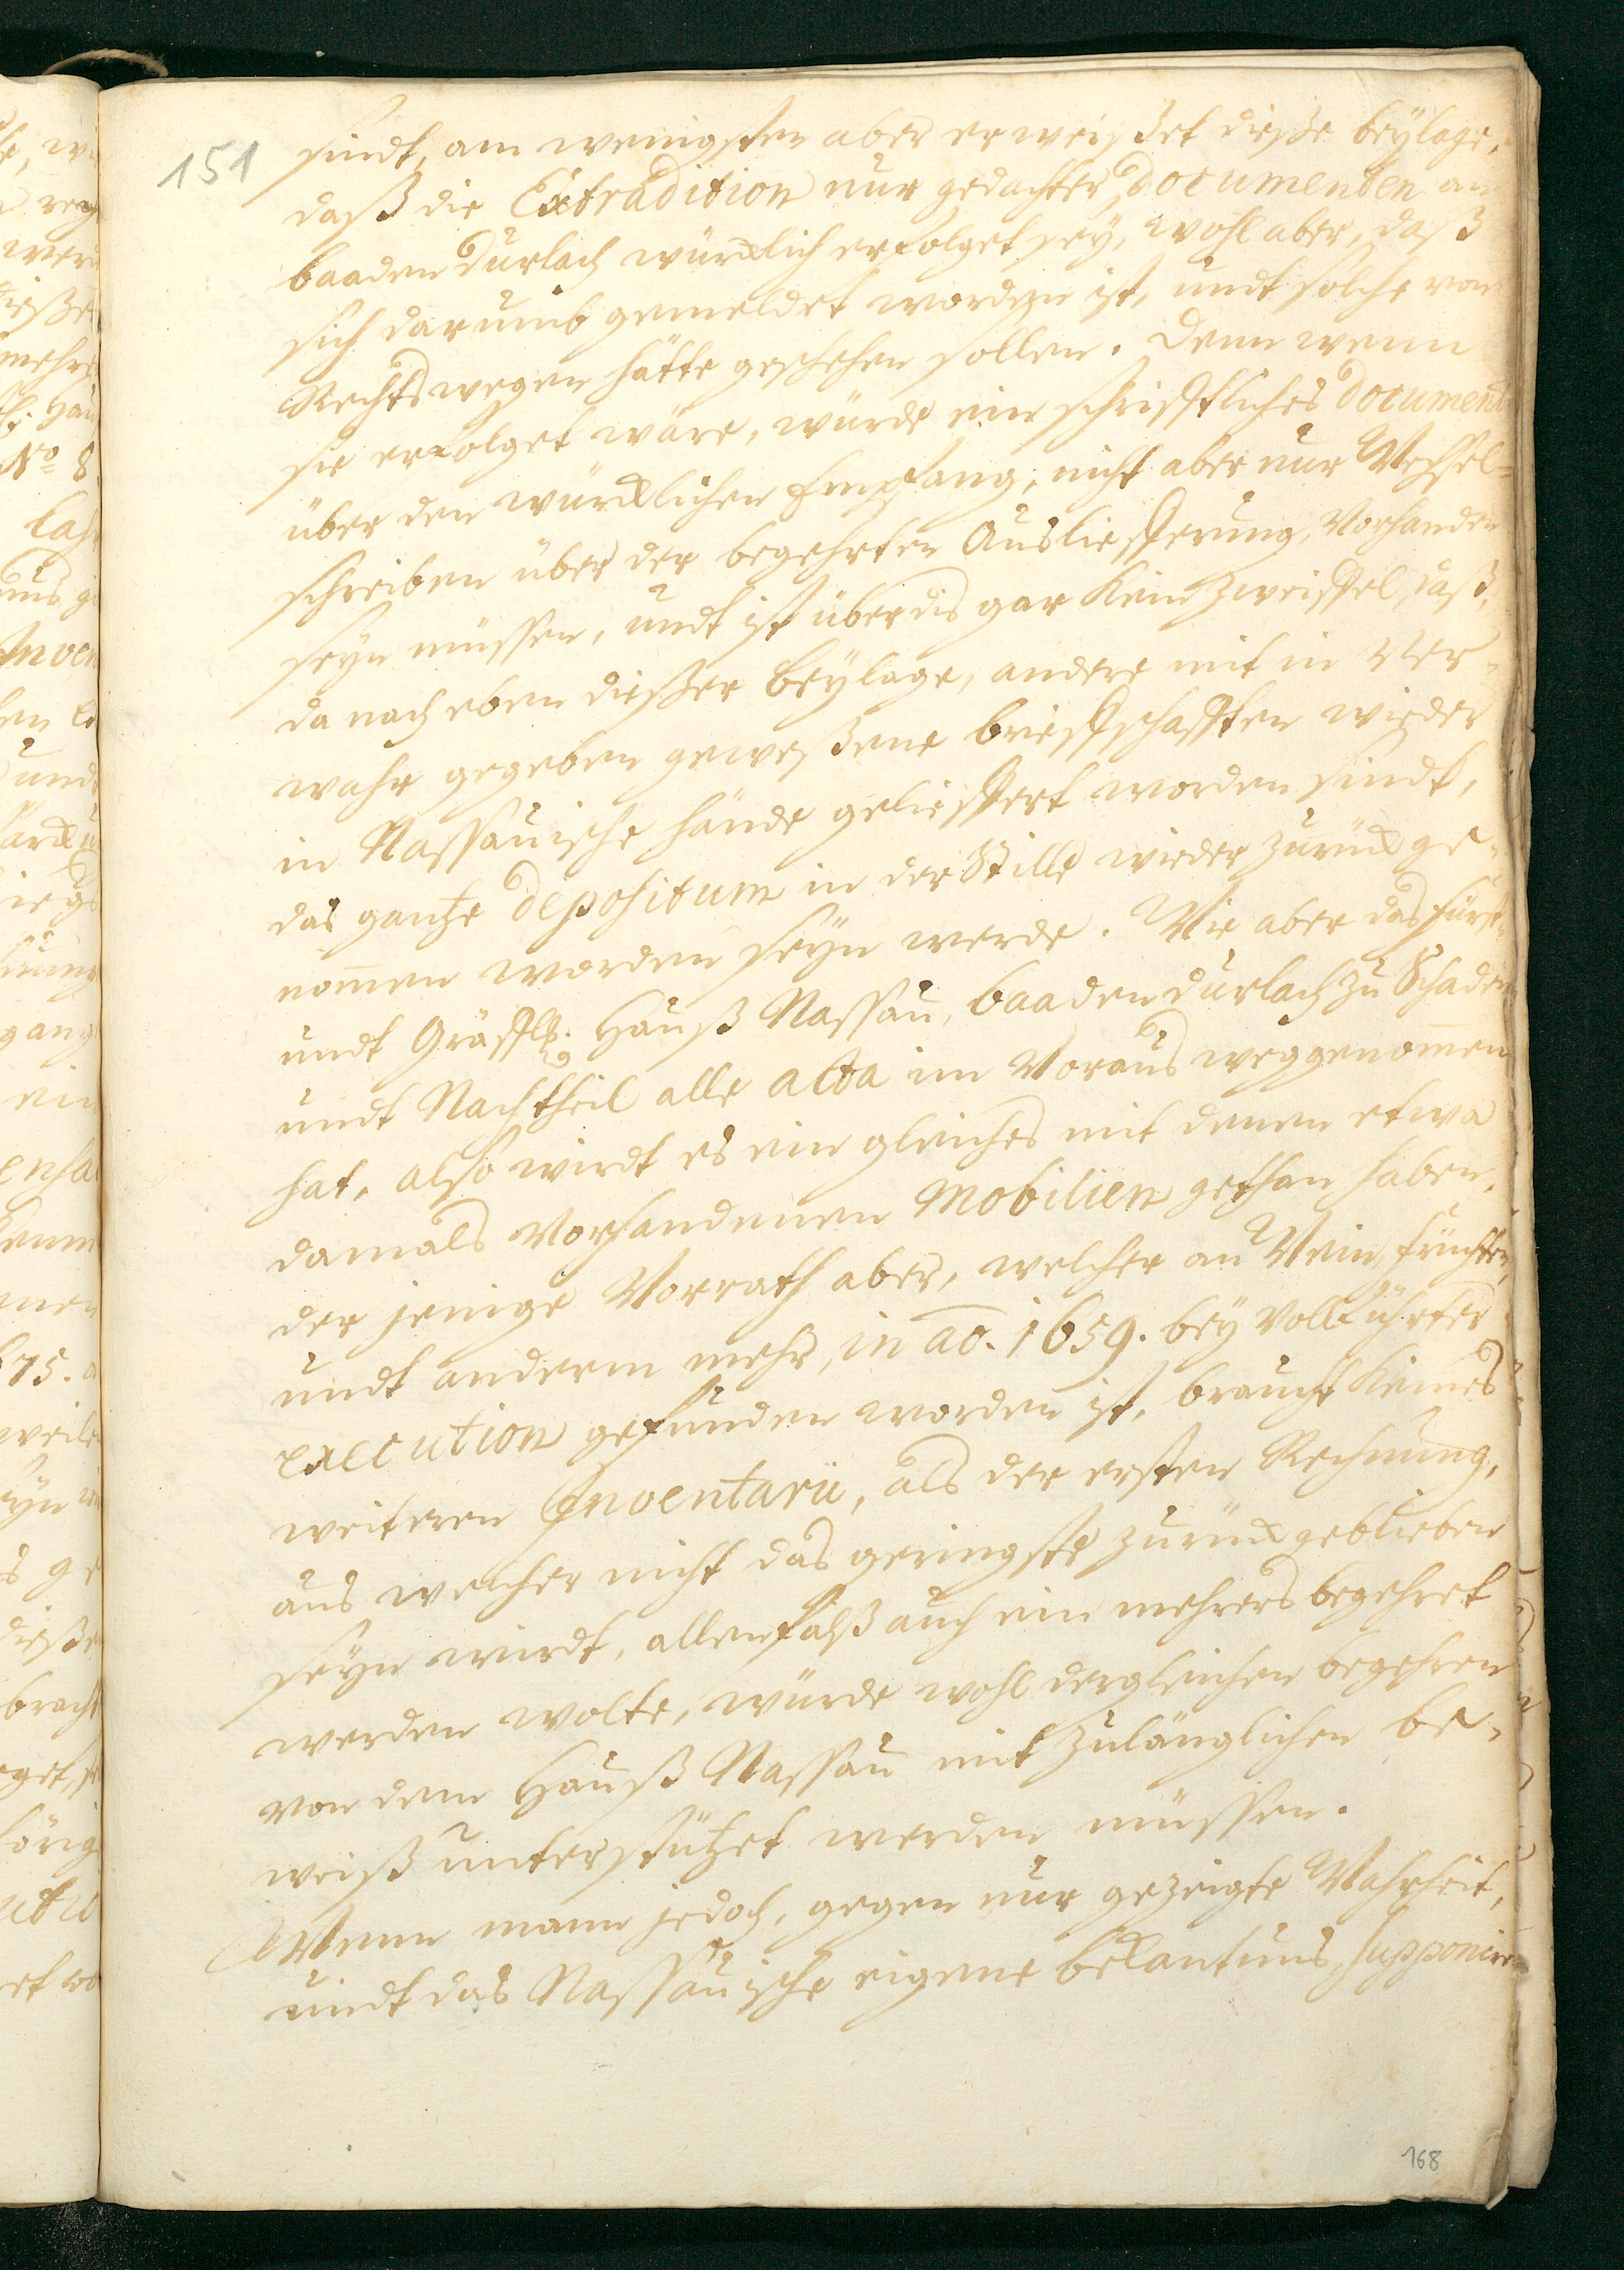 151
sindt, am wenigsten aber erweißet dieße beylage,
daß die Extradition nur gedachter Documenten an
baaden Durlach würcklich erfolget seÿ, wohl aber, daß
sich darumb gemeldet worden ist, undt solche von
Rechts wegen hätte geschehen sollen. Denn wenn
sie erfolget wäre, würde ein schrifftliches Document
über den würcklichen Empfang, nicht aber nur Wechsel=
schreiben über der begehrten Auslieffrung, vorhanden
seyn müssen, undt ist überdis gar kein Zweiffel, daß,
da nach eben dießer beÿlage, andere mit in Ver=
wahr gegeben geweßene brieffschafften wieder
in Nassauische hände gelieffert worden sindt,
das gantze depositum in der Stille wieder zurück ge=
nom̄en worden seyn werde. Wie aber das fürst=
undt Gräffl. Hauß Nassau, baaden Durlach zu Schaden
undt Nachtheil alle acta im Voraus weggenom̄en
hat, also wirdt es ein gleiches mit denen etwa
damals vorhandenen Mobilien gethan haben,
der jenige Vorrath aber, welcher an Wein, früchten,
undt anderm mehr, in ao. 1659. beÿ vollführter
execution gefunden worden ist, braucht keines
weiteren Inventarii, als der ersten Rechnung,
aus welcher nicht das geringste zurück geblieben
seyn wirdt, allenfalß auch ein mehrers begehret
werden wolte, würde wohl dergleichen begehren
von dem Hauß Nassau mit zulänglichen be=
weiß unterstützet werden müssen.
Wenn mann jedoch, gegen nur gezeigte Wahrheit,
undt das Nassauische eigene bekantnus, supponiren
168